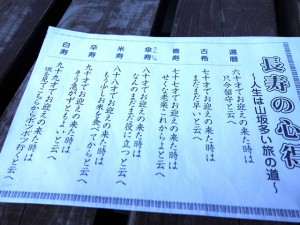 長寿の心得
〜人生は山坂多い旅の道〜
還暦
六十才でお迎えの来た時は
只今留守と云へ
古希
七十才でお迎えの来た時は
まだまだ早いと云へ
喜寿
七十七才でお迎えの来た時は
せくな老楽これからよと云へ
傘寿
八十才でお迎えの来た時は
なんのまだまだ役に立つと云へ
米寿
八十八才でお迎えの来た時は
もう少しお米を食べてからと云へ
卒寿
九十才でお迎えの来た時は
そう急がずともよいと云へ
白寿
九十九才でお迎えの来た時は
頃を見てこちらからボツボツ行くと云へ